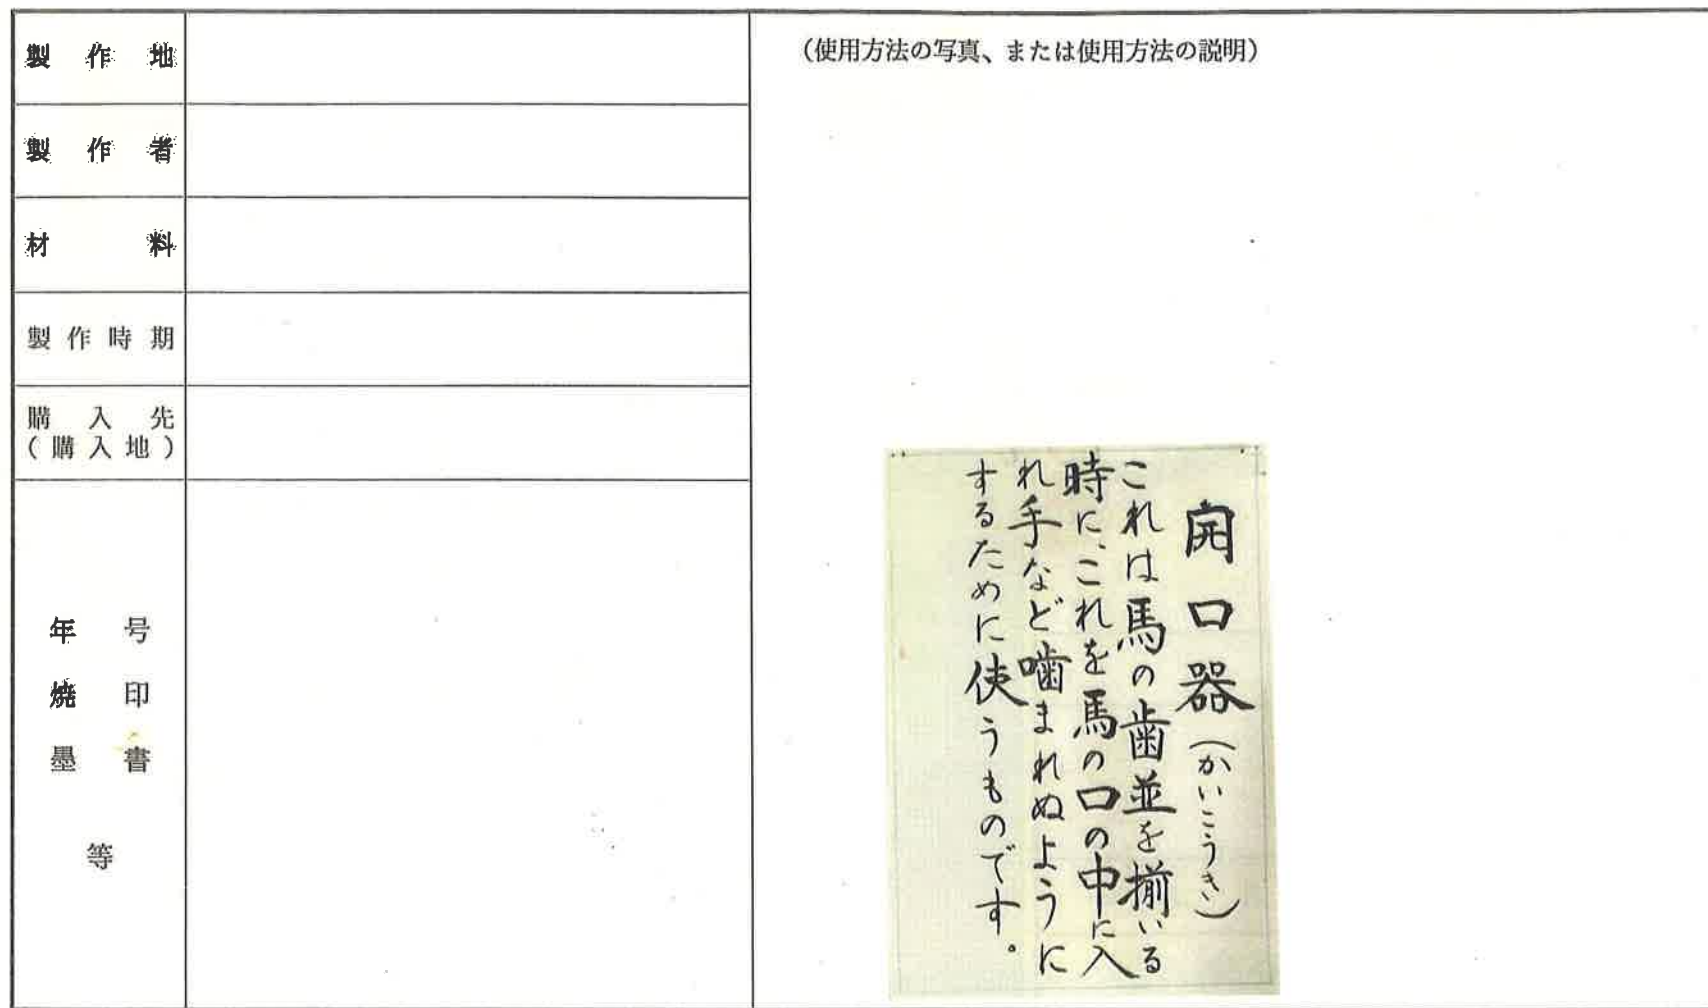 製作地
製作者
材料
製作時期
購入先
(購入地)
年号
焼印
墨書
等
(使用方法の写真、または使用方法の説明)
開口器(かいこうき)
これは馬の歯並を揃いる
時に、これを馬の口の中に入
れ手など噛まれぬように
するために使うものです。